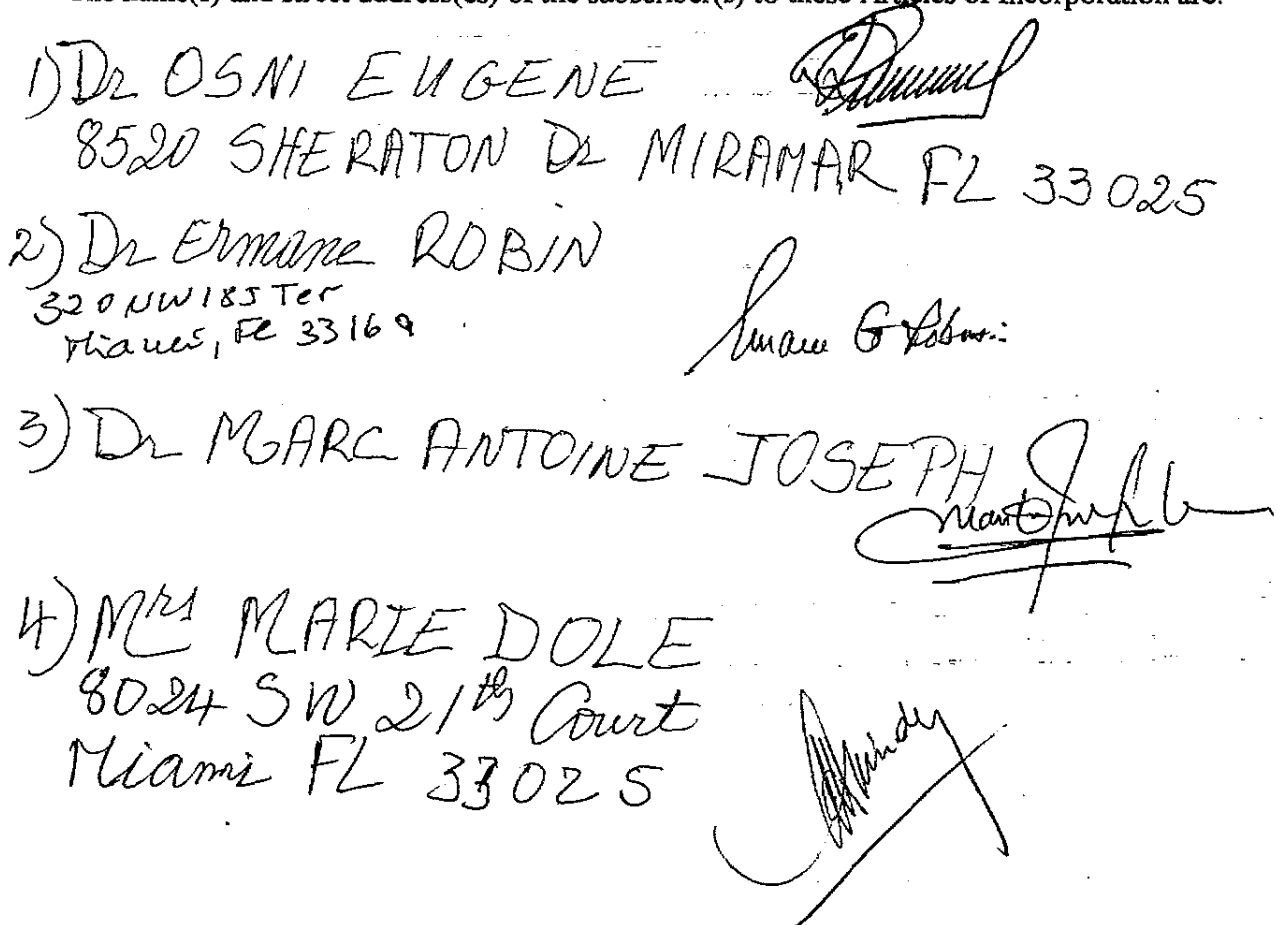 The name(s) and street address(es) of the subscriber(s) to these Articles of Incorporation are:
1) Dr OSNI EUGENE
8520 SHERATON Dr MIRAMAR FL 33025
2) Dr Ermane ROBIN
320 NW 185 Ter
Miami, FL 33169
3) Dr MARC ANTOINE JOSEPH
4) Mrs MARIE DOLE
8024 SW 21th Court
Miami FL 33025